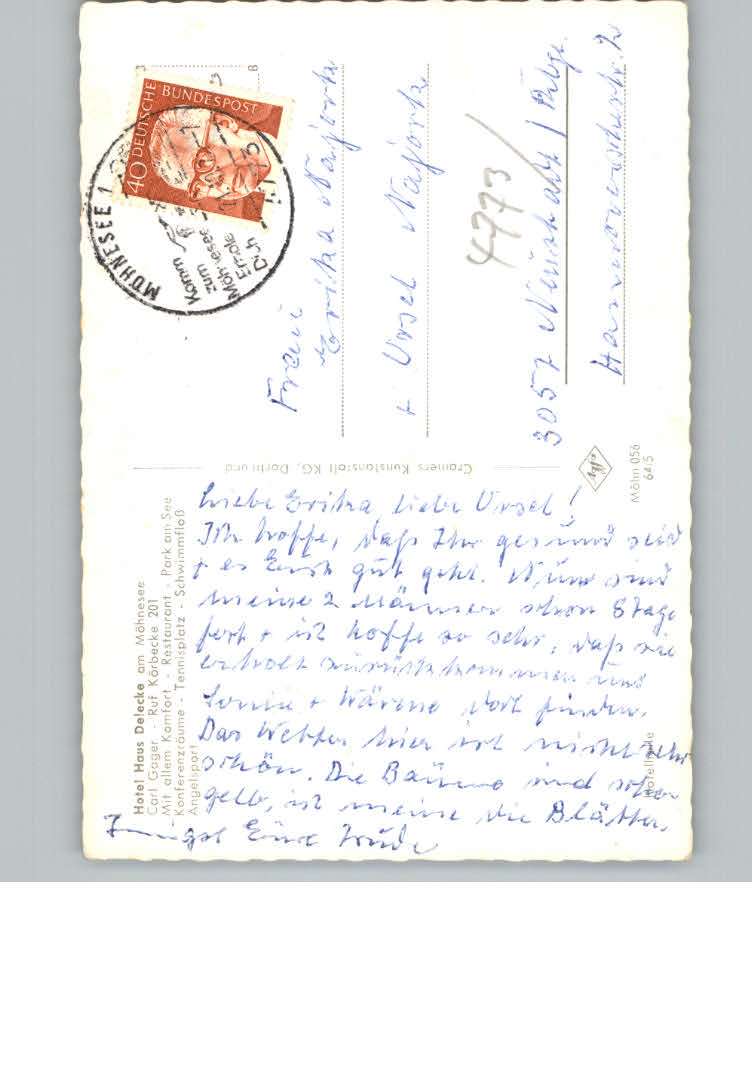 Hotel Haus Delecke am Möhnesee
Carl Gager - Ruf Körbecke 201
Mit allem Komfort - Restaurant - Park am See
Konferenzräume - Tennisplatz - Schwimmfloß
Angelsport
Liebe Erika, liebe Ursel!
Ich hoffe, daß Ihr gesund seid
+ es Euch gut geht. Nun sind
meine 2 Männer schon 8 Tage
fort + ich hoffe so sehr, daß sie
erholt zurückkommen und
Sonne + Wärme dort finden.
Das Wetter hier ist nicht sehr
schön. Die Bäume sind schon
gelb, ich meine die Blätter.
Eure Trude
Cramers Kunstanstalt KG, Dortmund
DEUTSCHE BUNDESPOST
40
MÖHNESEE 1
Komm
zum
Möhnesee
Erhole
Dich
Frau
Erika Najork
+ Ursel Najork
4773/
3057 Neustadt / Rbge.
Hannoverscherstr. 2
Agfa
Möhn 056
64/5
Hotelhalle